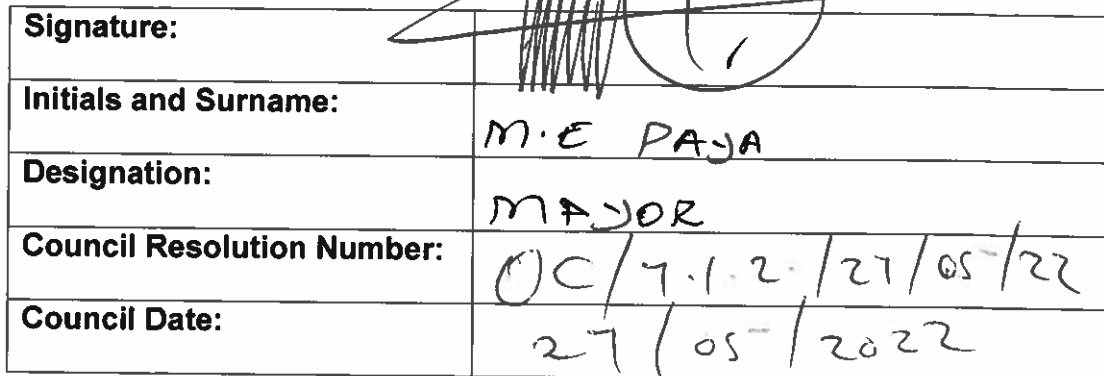 Signature:
Initials and Surname: M.E PAYA
Designation: MAYOR
Council Resolution Number: OC/7.1.2./27/05/22
Council Date: 27/05/2022